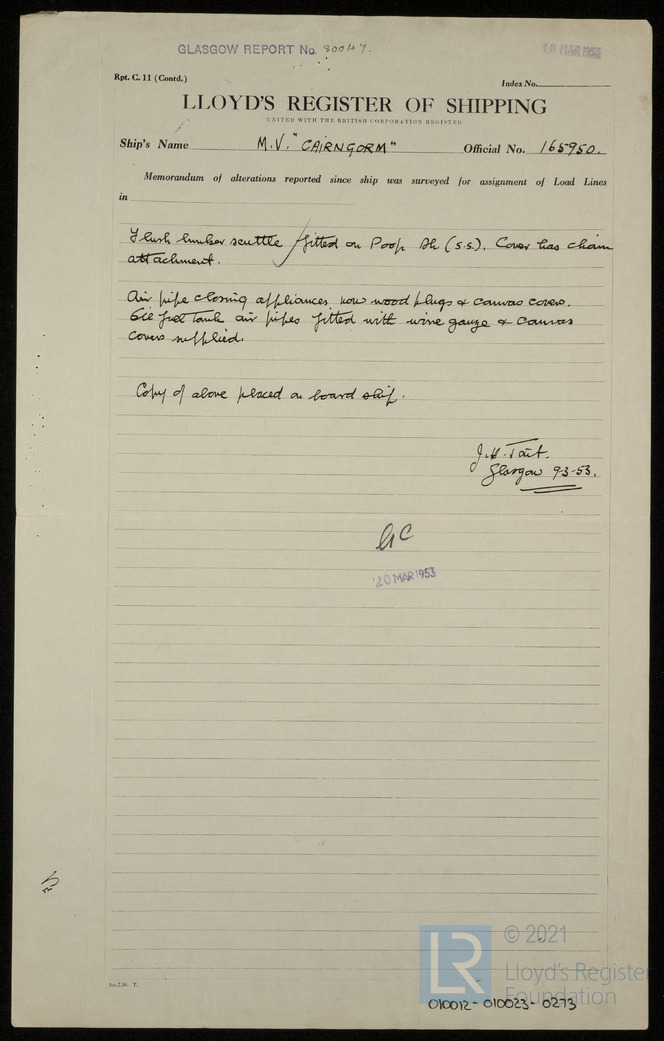 GLASGOW REPORT No. 80047.
16 MAR 1953
Rpt. C. 11 (Contd.)
Index No.
LLOYD'S REGISTER OF SHIPPING
UNITED WITH THE BRITISH CORPORATION REGISTER
Ship's Name M.V. "CAIRNGORM" Official No. 165950.
Memorandum of alterations reported since ship was surveyed for assignment of Load Lines
in
Flush bunker scuttle fitted on Poop Dk (S.S.). Cover has chain
attachment.
Air pipe closing appliances now wood plugs & canvas covers.
Oil fuel Tank air pipes fitted with wire gauze & canvas
covers supplied.
Copy of above placed on board ship.
J.H. Tait.
Glasgow 9-3-53.
20 MAR 1953
© 2021
LR
Lloyd's Register
Foundation
010012-010023-0273